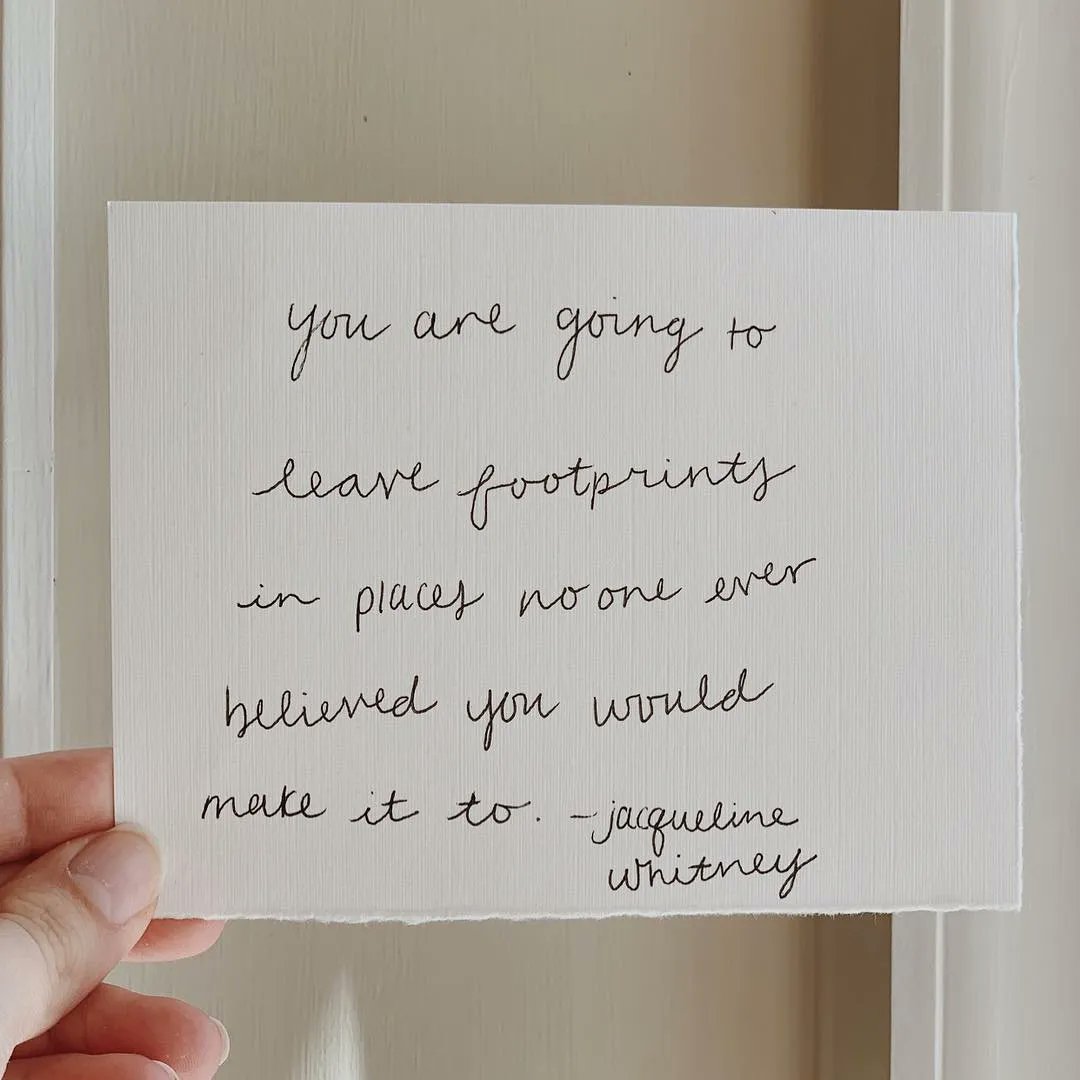 you are going to
leave footprints
in places no one ever
believed you would
make it to. -jacqueline
whitney